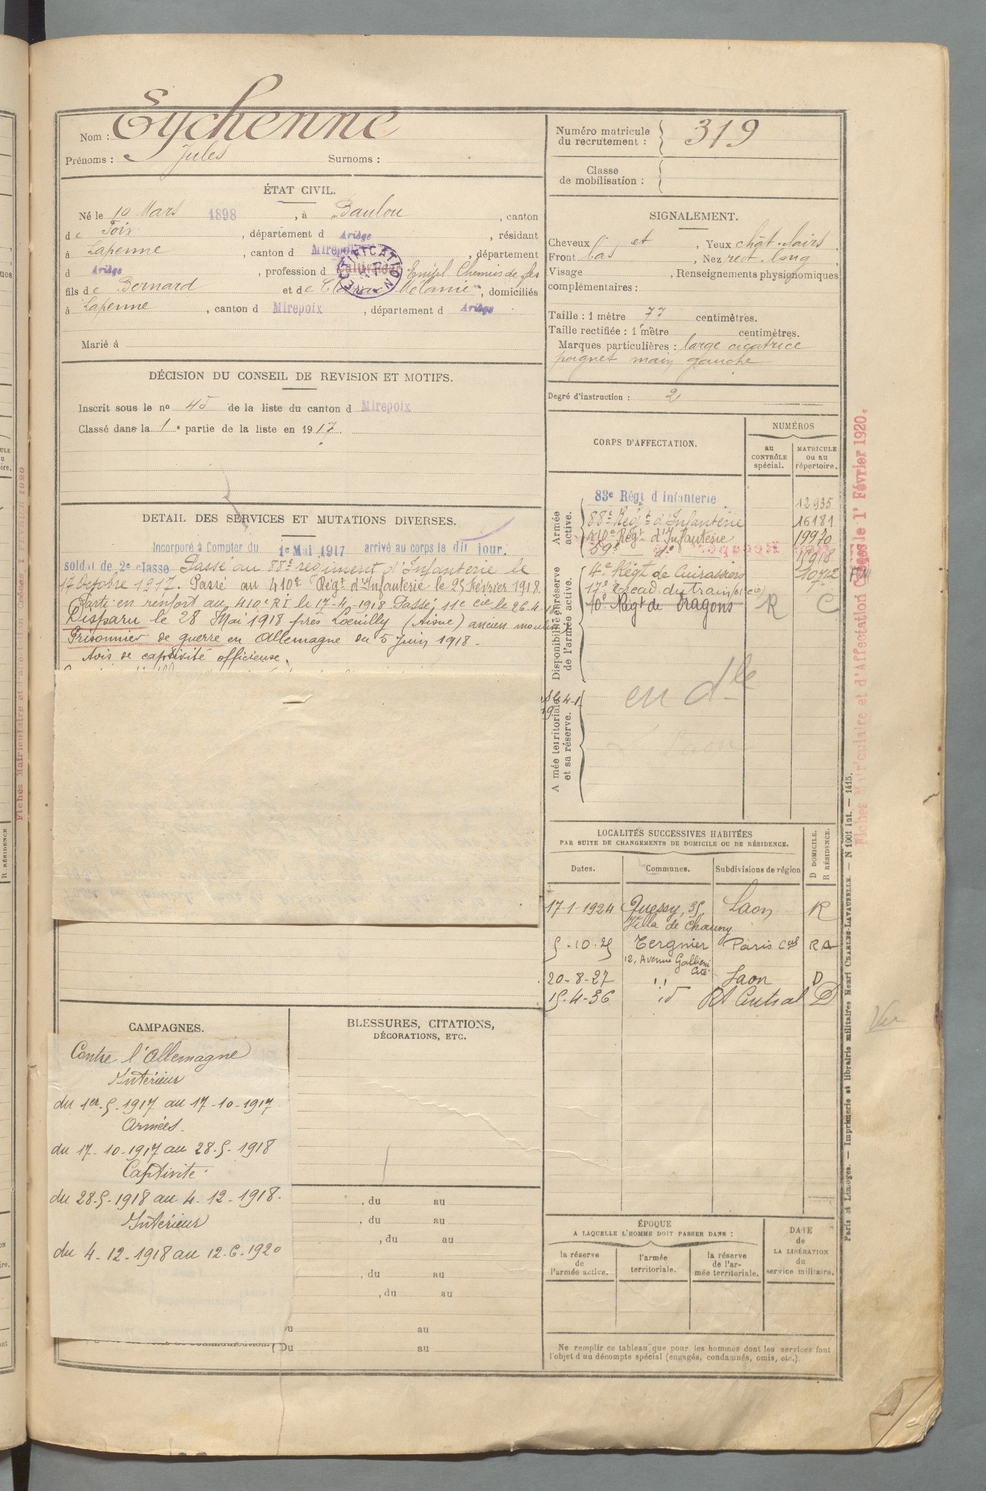 Nom : Eychenne
Prénoms : Jules Surnoms :
ÉTAT CIVIL.
Né le 10 Mars 1898, à Baulou, canton
de Foix, département d Ariège, résidant
à Lapenne, canton d Mirepoix, département
d Ariège, profession d Empl Chemins de fer
fils de Bernard et de Mélanie, domiciliés
à Lapenne, canton d Mirepoix, département d Ariège
RECTIFICATION
Marié à
DÉCISION DU CONSEIL DE REVISION ET MOTIFS.
Inscrit sous le no 45 de la liste du canton d Mirepoix
Classé dans la 1e partie de la liste en 1917.
DETAIL DES SERVICES ET MUTATIONS DIVERSES.
Incorporé à Compter du 1e Mai 1917 arrivé au corps le dit jour.
soldat de 2e classe Passé au 88e régiment d'Infanterie le
17 Octobre 1917. Passé au 410e Régt d'Infanterie le 25 Février 1918.
Parti en renfort au 410e RI le Passé 11e cie le 26.4.
Disparu le 28 Mai 1918 près Loeuilly (Aisne)
Prisonnier de guerre en Allemagne du 5 Juin 1918.
Avis de captivité officieuse.
CAMPAGNES.
Contre l'Allemagne
Intérieur
du 1er.5.1917 au 17-10-1917
Armées.
du 17-10-1917 au 28.5.1918
Captivité
du 28.5.1918 au 4.12.1918.
Intérieur
du 4.12.1918 au 12.6.1920
BLESSURES, CITATIONS,
DÉCORATIONS, ETC.
, du au
, du au
, du au
, du au
, du au
du au
Du au
Numéro matricule
du recrutement : 319
Classe
de mobilisation :
SIGNALEMENT.
Cheveux et, Yeux chât. clairs
Front bas, Nez rect. long
Visage, Renseignements physiognomiques
complémentaires :
Taille : 1 mètre 77 centimètres.
Taille rectifiée : 1 mètre centimètres.
Marques particulières : large cicatrice
poignet main gauche
Degré d'instruction : 2
CORPS D'AFFECTATION.
NUMÉROS
au
CONTRÔLE
spécial.
MATRICULE
ou au
répertoire.
Armée
active.
83e Régt d Infanterie 12935
88e Régt d'Infanterie 16181
410e Régt d'Infanterie 19970
Disponibilité et réserve
de l'armée active.
4e Régt de Cuirassiers
17e Escad du train
10e Régt de Dragons R C
Armée territoriale
et sa réserve.
en dle
LOCALITÉS SUCCESSIVES HABITÉES
PAR SUITE DE CHANGEMENTS DE DOMICILE OU DE RÉSIDENCE.
D DOMICILE.
R RÉSIDENCE.
Dates. Communes. Subdivisions de région
17-1-1924 Quessy, 35, Laon R
Villa de Chauny
5-10-25 Tergnier Paris Cal
12, Avenue Gallieni
Cité
20-8-27 " Laon D
15-4-36 id Rt Central D
ÉPOQUE
A LAQUELLE L'HOMME DOIT PASSER DANS :
la réserve
de
l'armée active.
l'armée
territoriale.
la réserve
de l'ar-
mée territoriale.
DATE
de
LA LIBÉRATION
du
service militaire.
Ne remplir ce tableau que pour les hommes dont les services font
l'objet d'un décompte spécial (engagés, condamnés, omis, etc.).
Fiches Matriculaire et d'Affectation Créées le 1er Février 1920.
Paris et Limoges. — Imprimerie et librairie militaires Henri CHARLES-LAVAUZELLE. — N 1001 Int. — 1415.